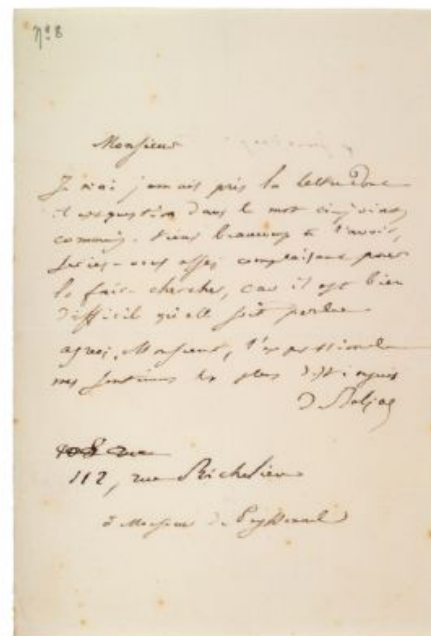 nº 8
Monsieur
Je n'ai jamais pris la lettre dont
il est question dans le mot cinjoint
comme je tiens beaucoup à l'avoir,
seriez-vous assez complaisant pour
la faire chercher, car il est bien
difficil qu'elle soit perdue
agréez, Monsieur, l'expression de
mes sentimens les plus distingués
de Balzac
112, rue Richelieu
à Monsieur de